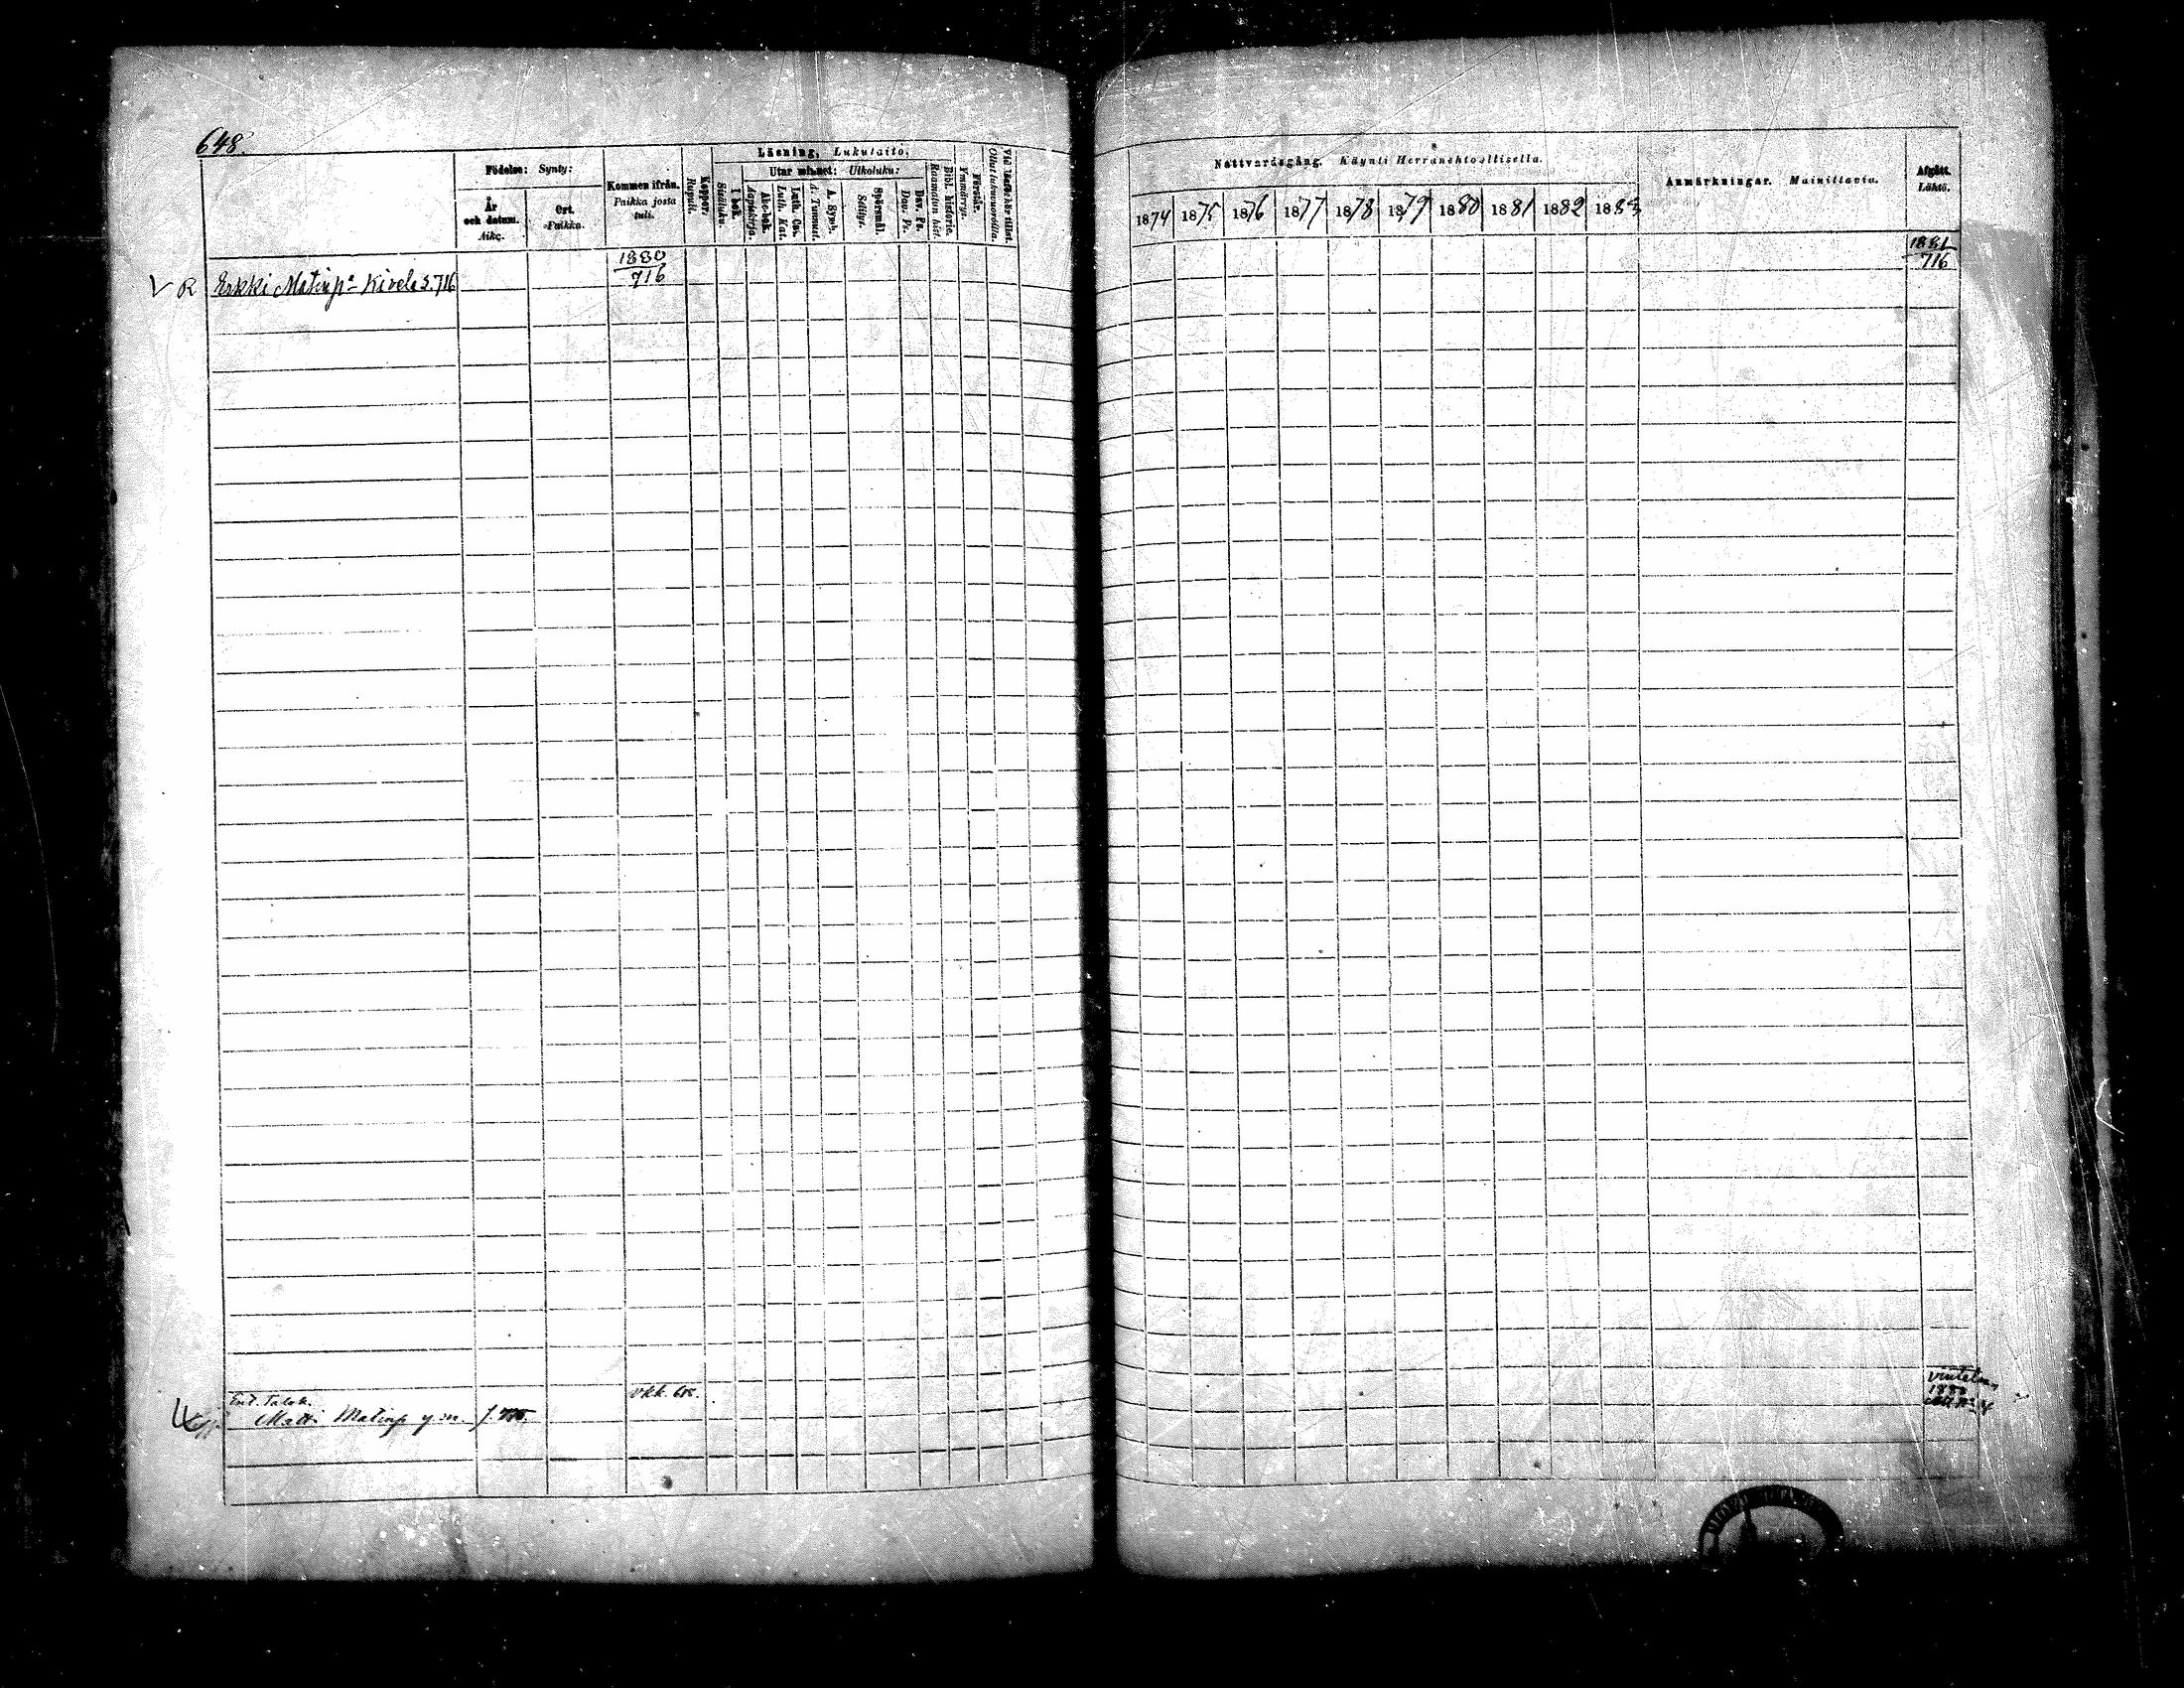 648.
Födelse: Synty:
År och datum. Aika.
Ort. Paikka.
Kommen ifrån. Paikka josta tuli.
Koppor. Rupuli.
Läsning, Lukutaito.
I bok. Sisäluku.
Utar minnet: Ulkoluku:
Abc-bok. Aapiskirja.
Luth. Cat. Luth. Kat.
A. Symb. A. Tunnust.
Spörsmål. Selitys.
Dav. Ps. Dav. Ps.
Bibl. historie. Raamatun hist.
Förstår. Ymmärrys.
Vid läseförhör tillst. Ollut lukuvuoroilla.
Nattvardsgång. Käynti Herranehtoollisella.
1874 1875 1876 1877 1878 1879 1880 1881 1882 1883
Anmärkningar. Mainittavia.
Afgått. Lähtö.
V R Erkki Matinp. Kivelä s. 716
1880
716
1881
716
Ent. Talok.
Matti Matinp y.m.
1880